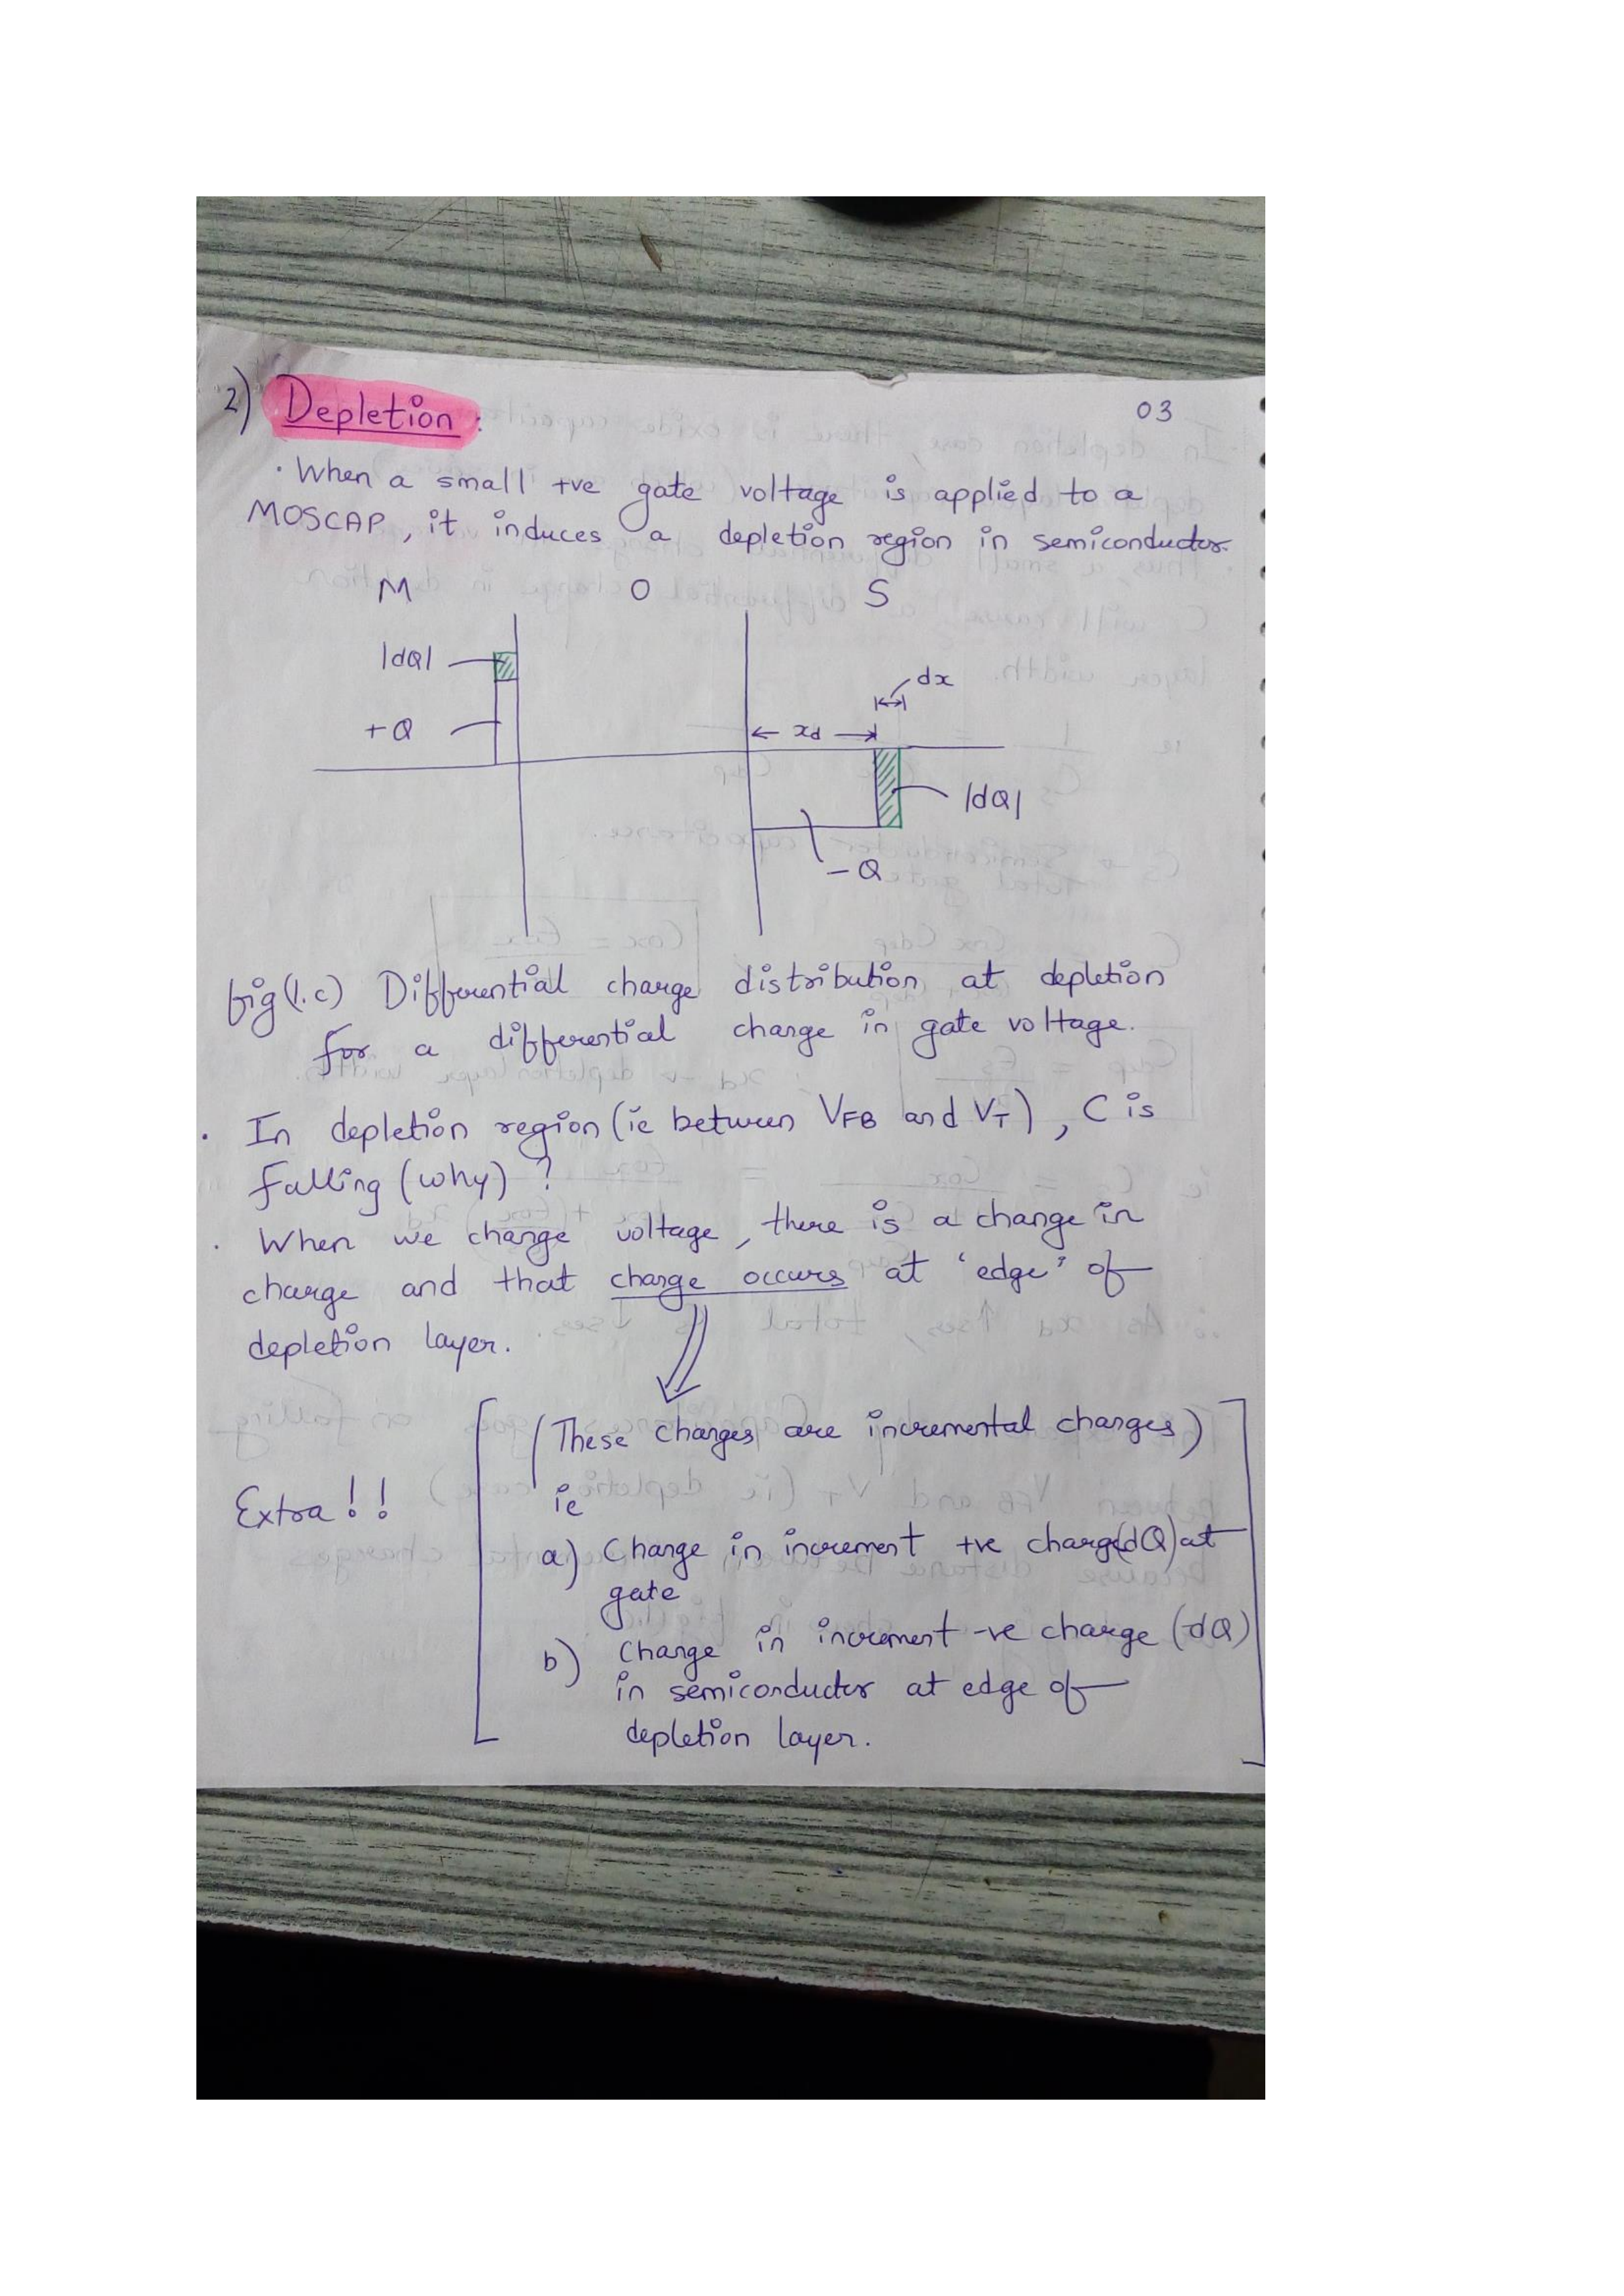 2) Depletion : 03
· When a small +ve gate voltage is applied to a
MOSCAP, it induces a depletion region in semiconductor.
M O S
|dQ|
dx
+Q
xd
|dQ|
-Q
fig(1.c) Differential charge distribution at depletion
for a differential change in gate voltage.
· In depletion region (ie between VFB and VT), C is
falling (why) ?
· When we change voltage, there is a change in
charge and that change occurs at 'edge' of
depletion layer.
(These changes are incremental changes)
Extra!!
ie
a) Change in increment +ve charge(dQ) at
gate
b) Change in increment -ve charge (-dQ)
in semiconductor at edge of
depletion layer.